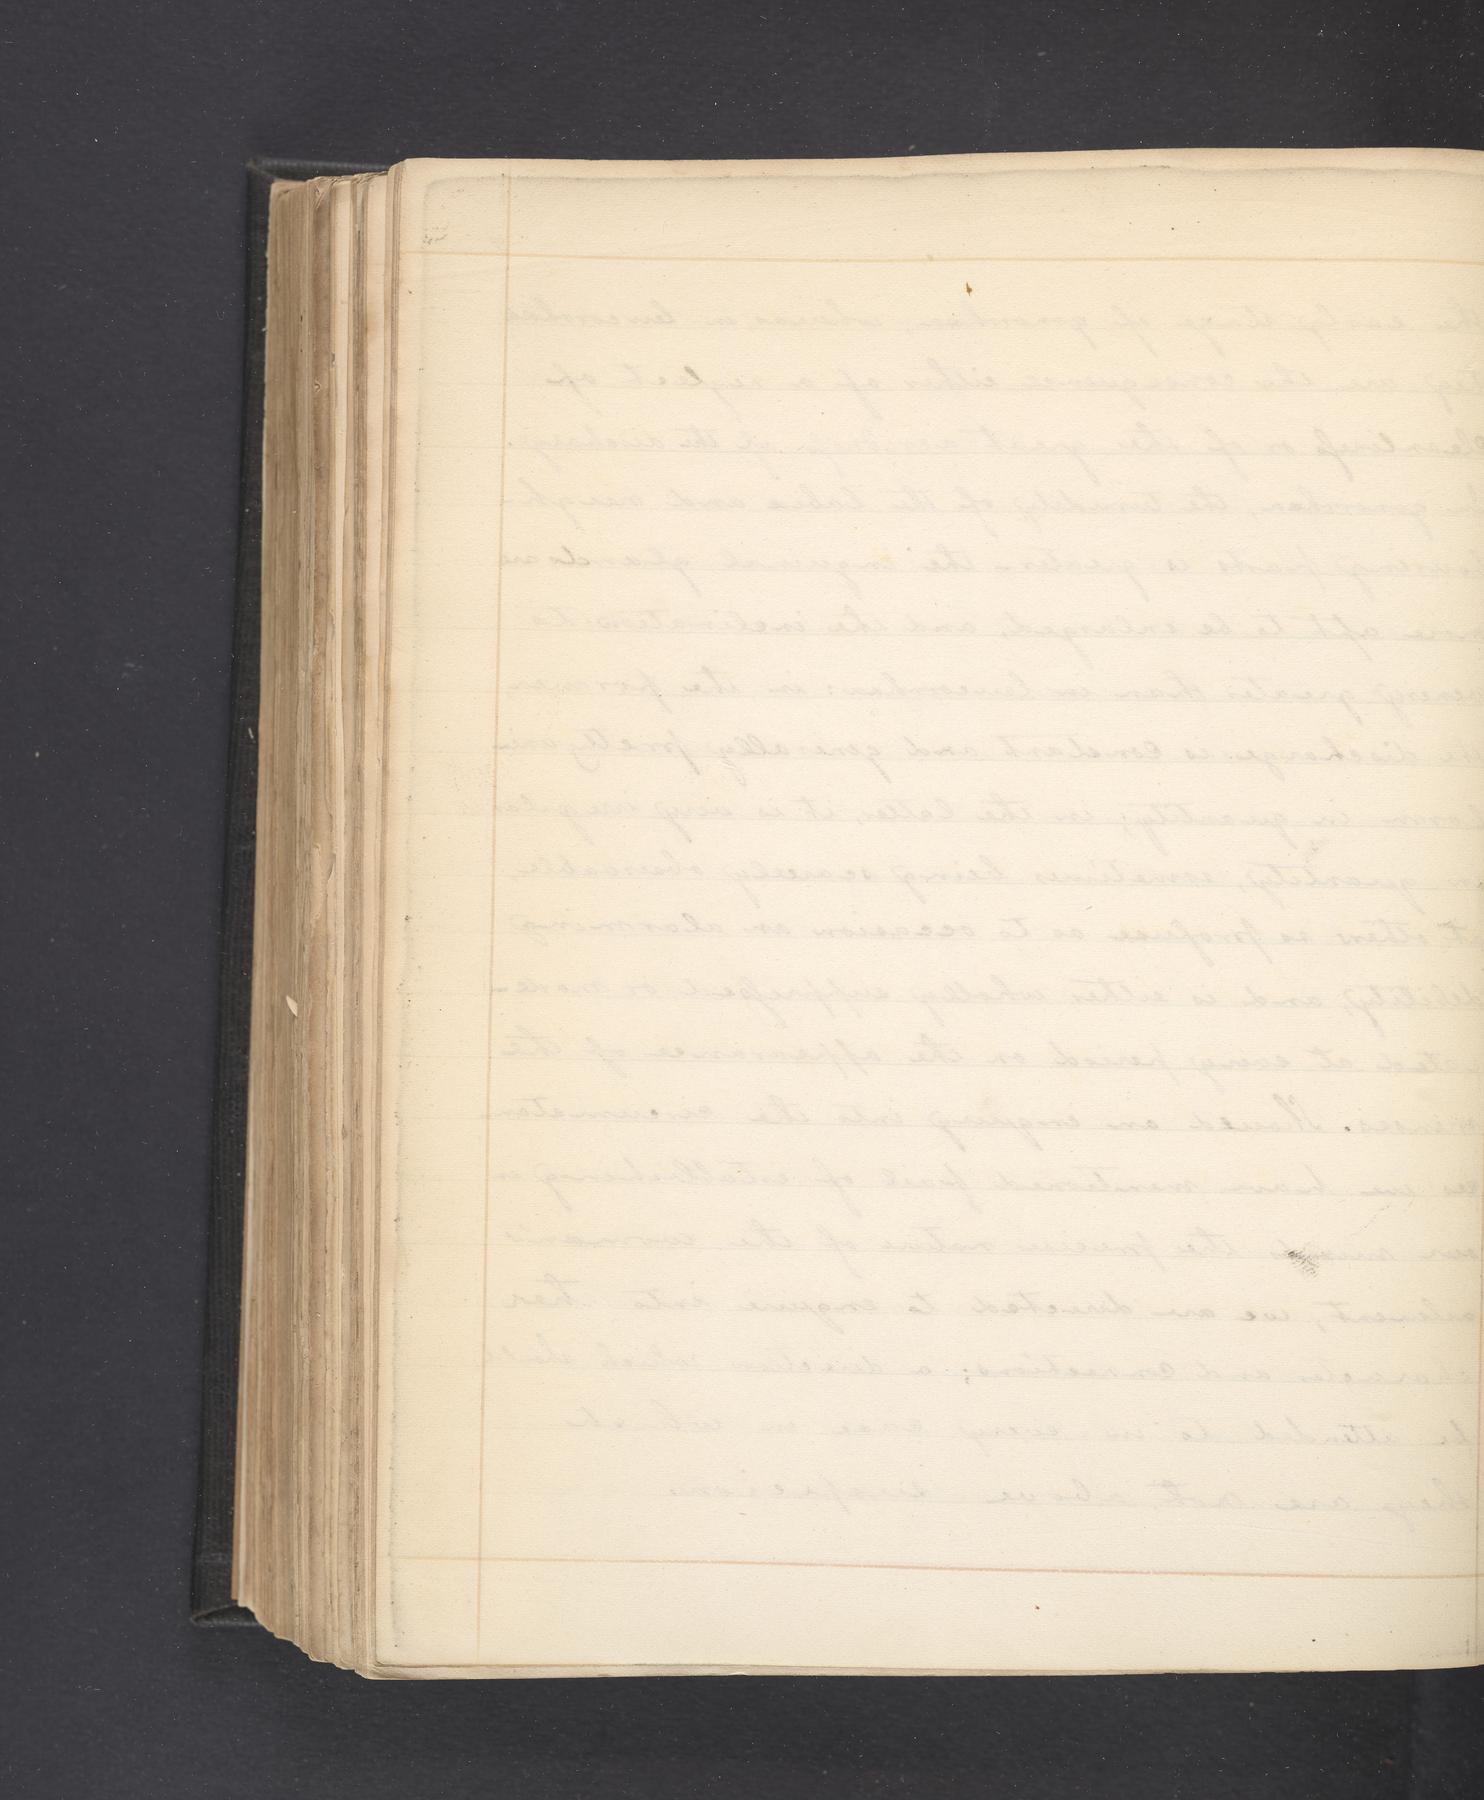 the early stage of gonorrhea, whereas in leucorrhea
they are the consequence either of a neglect of
cleanliness or of the great acrimony of the discharge.
gonorrhea, the tumidity of the labia and neigh-
bouring parts is greater the inguinal glands are
more apt to be enlarged, and the inclination to
venery greater than in leucorrhea: in the former
the discharge is constant and generally pretty uni-
form in quantity; in the latter, it is very irregular
in quantity, sometimes being scarcely observable,
at others so profuse as to occasion an alarming
debility, and is either wholly suppressed or mode-
rated at every period on the appearance of the
menses. Should an enquiry into the circumstan-
ces we have mentioned fail of establishing in
our minds the precise nature of the woman's
ailment, we are directed to enquire into her
character and connections; a direction which
be attended to in every case in which
they are not above suspicion